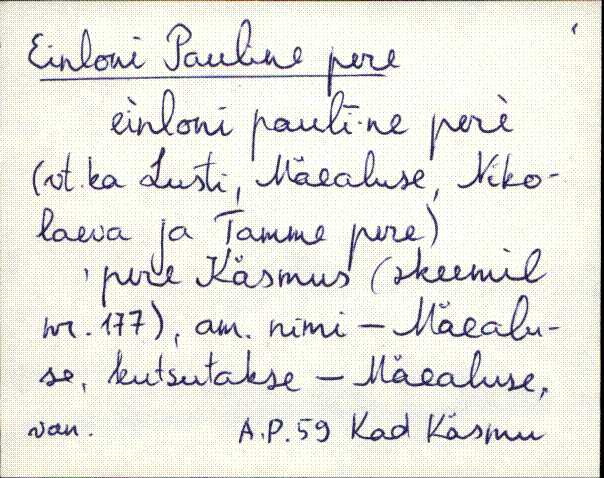 Einloni Pauline pere
èinloni paulī·ne perè
(vt. ka Lusti, Mäealuse, Niko-
laeva ja Tamme pere)
pere Käsmus (skeemil
nr. 177), am. nimi – Mäealu-
se, kutsutakse – Mäealuse,
van. A.P. 59 Kad Käsmu